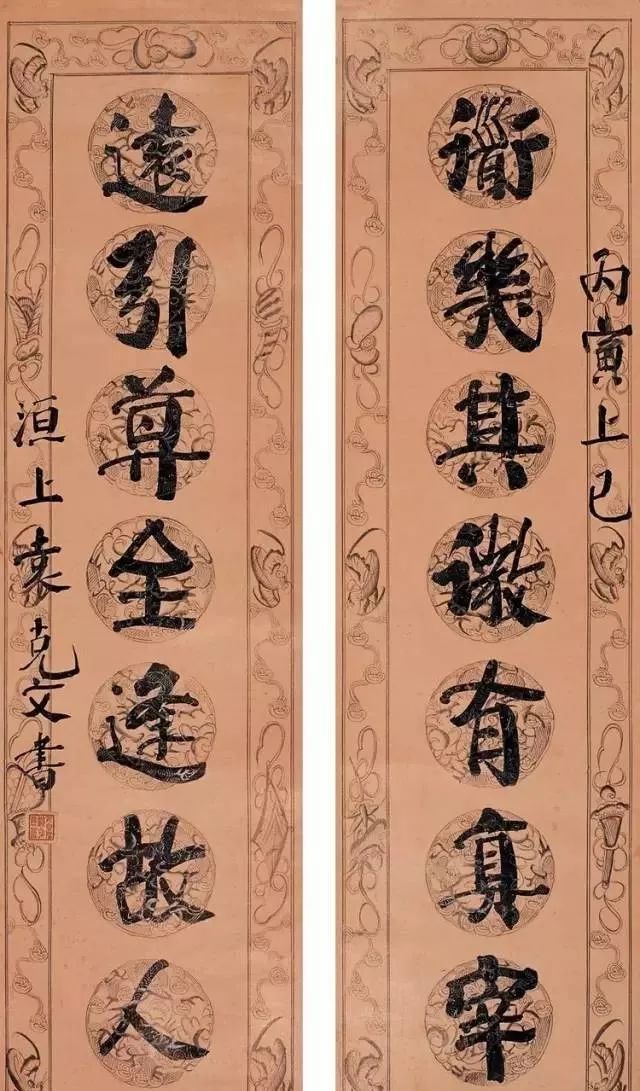 丙寅上巳
衜幾其微有真宰
遠引尊全逢故人
洹上袁克文書